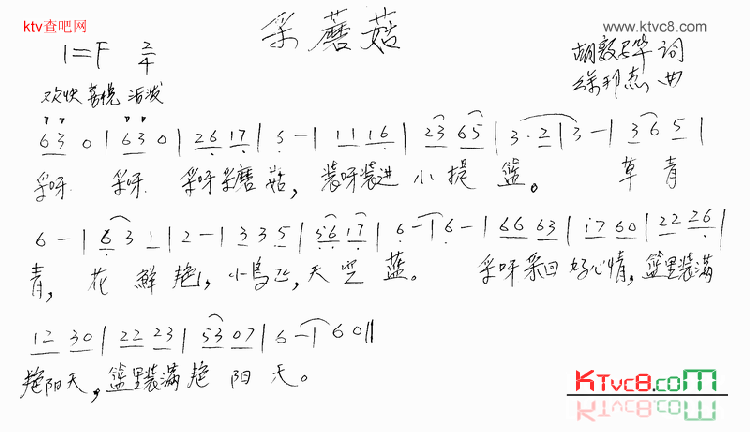 ktv查吧网
www.ktvc8.com
采蘑菇
1=F 2/4
胡敦华 词
徐邦杰 曲
欢快 喜悦 活泼
63 0 | 63 0 | 26 17 | 5 - | 11 16 | 23 65 | 3·2 | 3 - | 36 5 |
采呀 采呀 采呀采蘑菇，装呀装进小提篮。 草青
6 - | 63 | 2 - | 33 5 | 56 17 | 6 - | 6 - | 66 63 | 17 60 | 22 26 |
青，花鲜艳，小鸟飞，天空蓝。 采呀采回好心情，篮里装满
12 30 | 22 23 | 53 07 | 6 - | 6 0 ‖
艳阳天，篮里装满艳阳天。
KTvc8.com